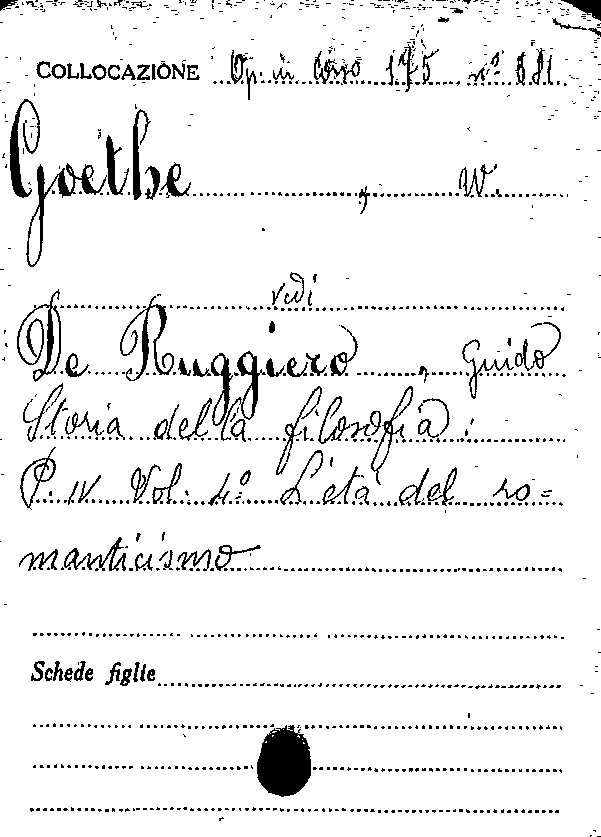 COLLOCAZIONE Op. in Corso 175 nº 681
Goethe , W.
vedi
De Ruggiero , Guido
Storia della filosofia :
P. IV Vol. 4º L'età del ro=
manticismo
Schede figlie